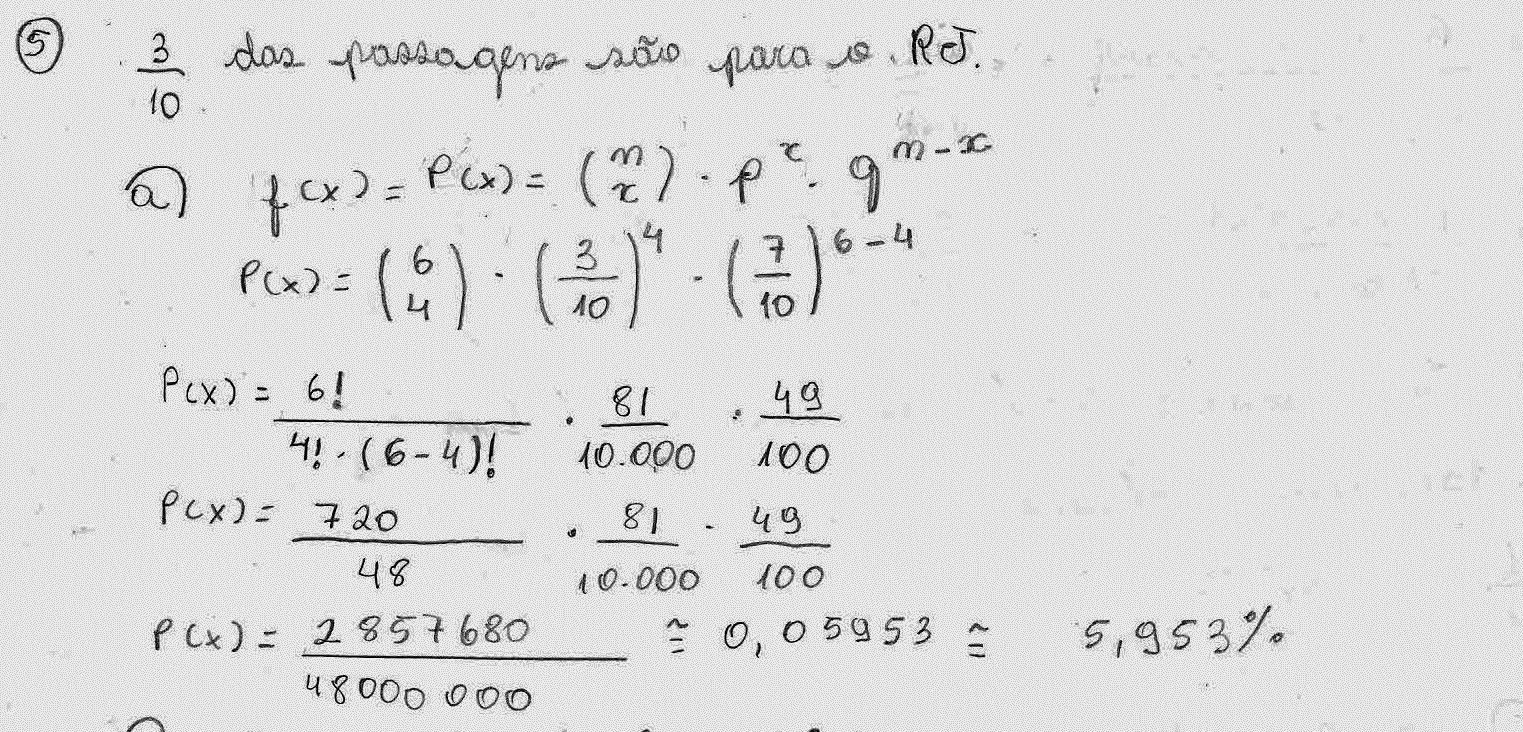 5 3/10 das passagens são para o RJ.
a) f(x) = P(x) = (n x) · p^x · q^(n-x)
P(x) = (6 4) · (3/10)^4 · (7/10)^(6-4)
P(x) = 6!/(4! · (6-4)!) · 81/10.000 · 49/100
P(x) = 720/48 · 81/10.000 · 49/100
P(x) = 2857680/48000000 ≅ 0,05953 ≅ 5,953%